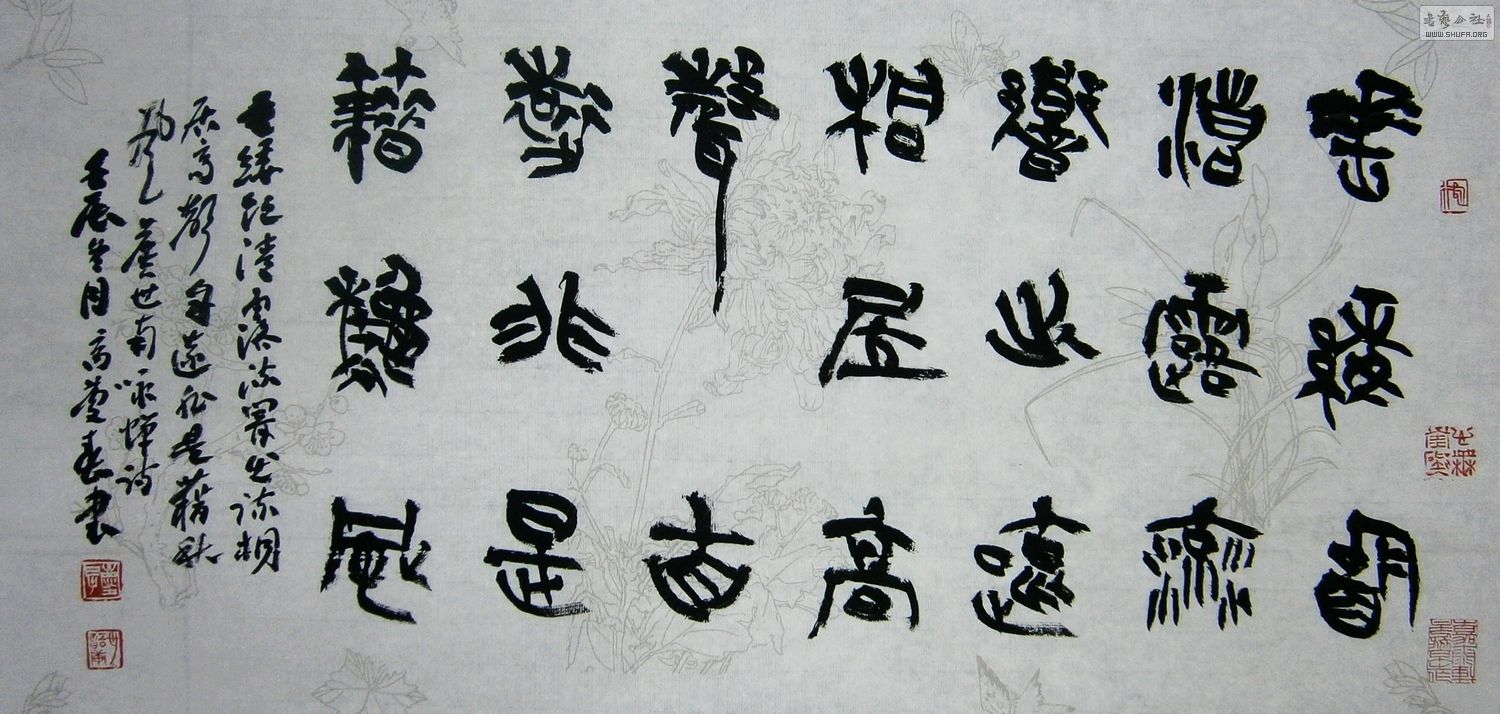 垂緌飲
清露流
響出疏
桐居高
聲自
遠非是
藉秋風
垂緌飲清露流響出疏桐
居高聲自遠非是藉秋
風虞世南詠蟬詩
壬辰冬月高慶春書
書藝公社
WWW.SHUFA.ORG